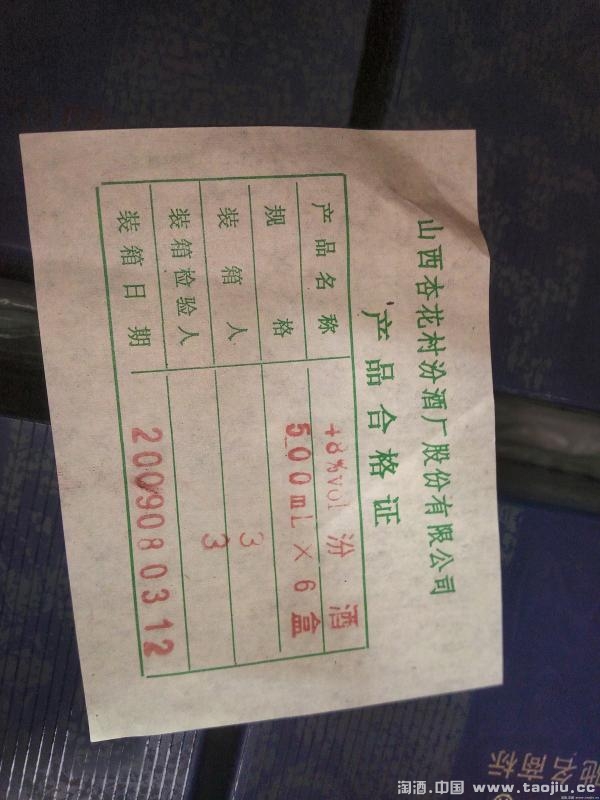 山西杏花村汾酒厂股份有限公司
产品合格证
产品名称 48%vol 汾酒
规格 500mL×6盒
装箱人 3
装箱检验人 3
装箱日期 2009080312
驰名商标
淘酒.中国 www.taojiu.cc